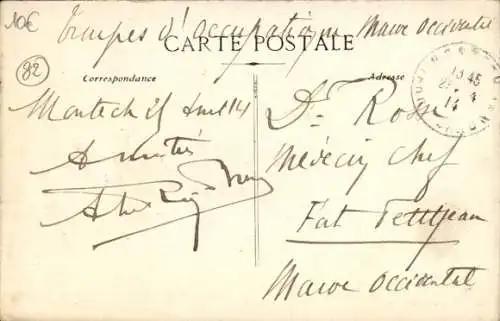 10€
Troupes d'occupation Maroc Occidental
CARTE POSTALE
82
Correspondance
Adresse
Montech 25 avril 14
Amitiés
Dr Rom
Médecin Chef
Fort Petitjean
Maroc Occidental